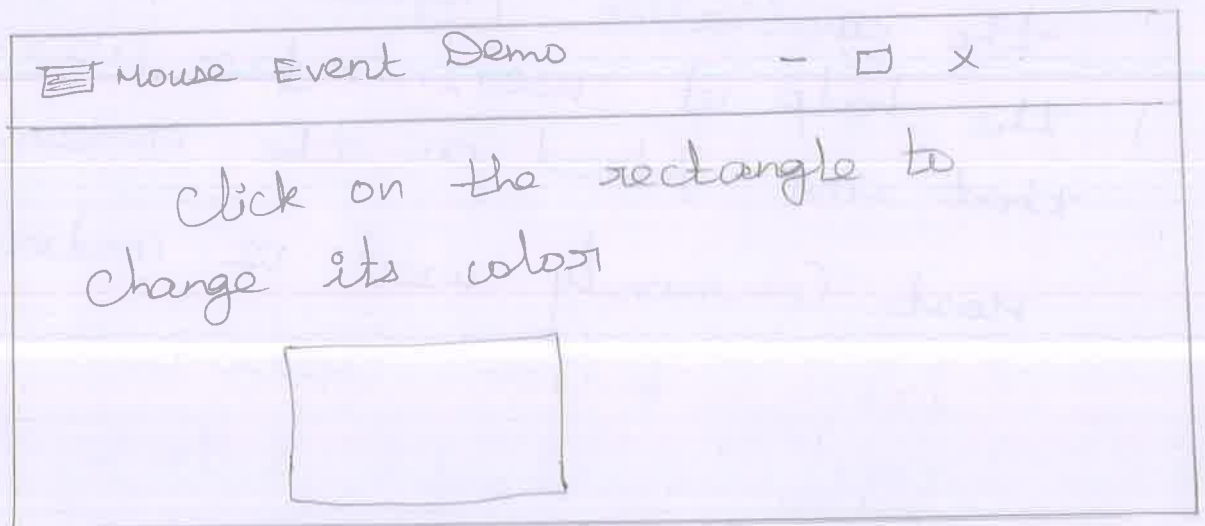 Mouse Event Demo
Click on the rectangle to
Change its color